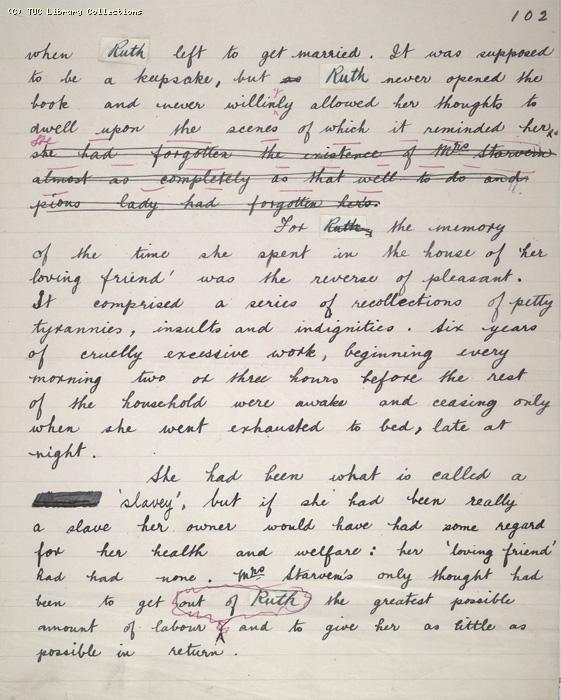 (C) TUC Library Collections
102
when Ruth left to get married. It was supposed
to be a keepsake, but as Ruth never opened the
book and never willinly allowed her thoughts to
dwell upon the scenes of which it reminded her,
she had forgotten the existence of Mrs Starven
almost as completely as that well to do and
pious lady had forgotten hers.
For Ruth, the memory
of the time she spent in the house of 'her
loving friend' was the reverse of pleasant.
It comprised a series of recollections of petty
tyrannies, insults and indignities. Six years
of cruelly excessive work, beginning every
morning two or three hours before the rest
of the household were awake and ceasing only
when she went exhausted to bed, late at
night.
She had been what is called a
'slavey', but if she had been really
a slave her owner would have had some regard
for her health and welfare: her 'loving friend'
had had none. Mrs Starven's only thought had
been to get out of Ruth the greatest possible
amount of labour and to give her as little as
possible in return.